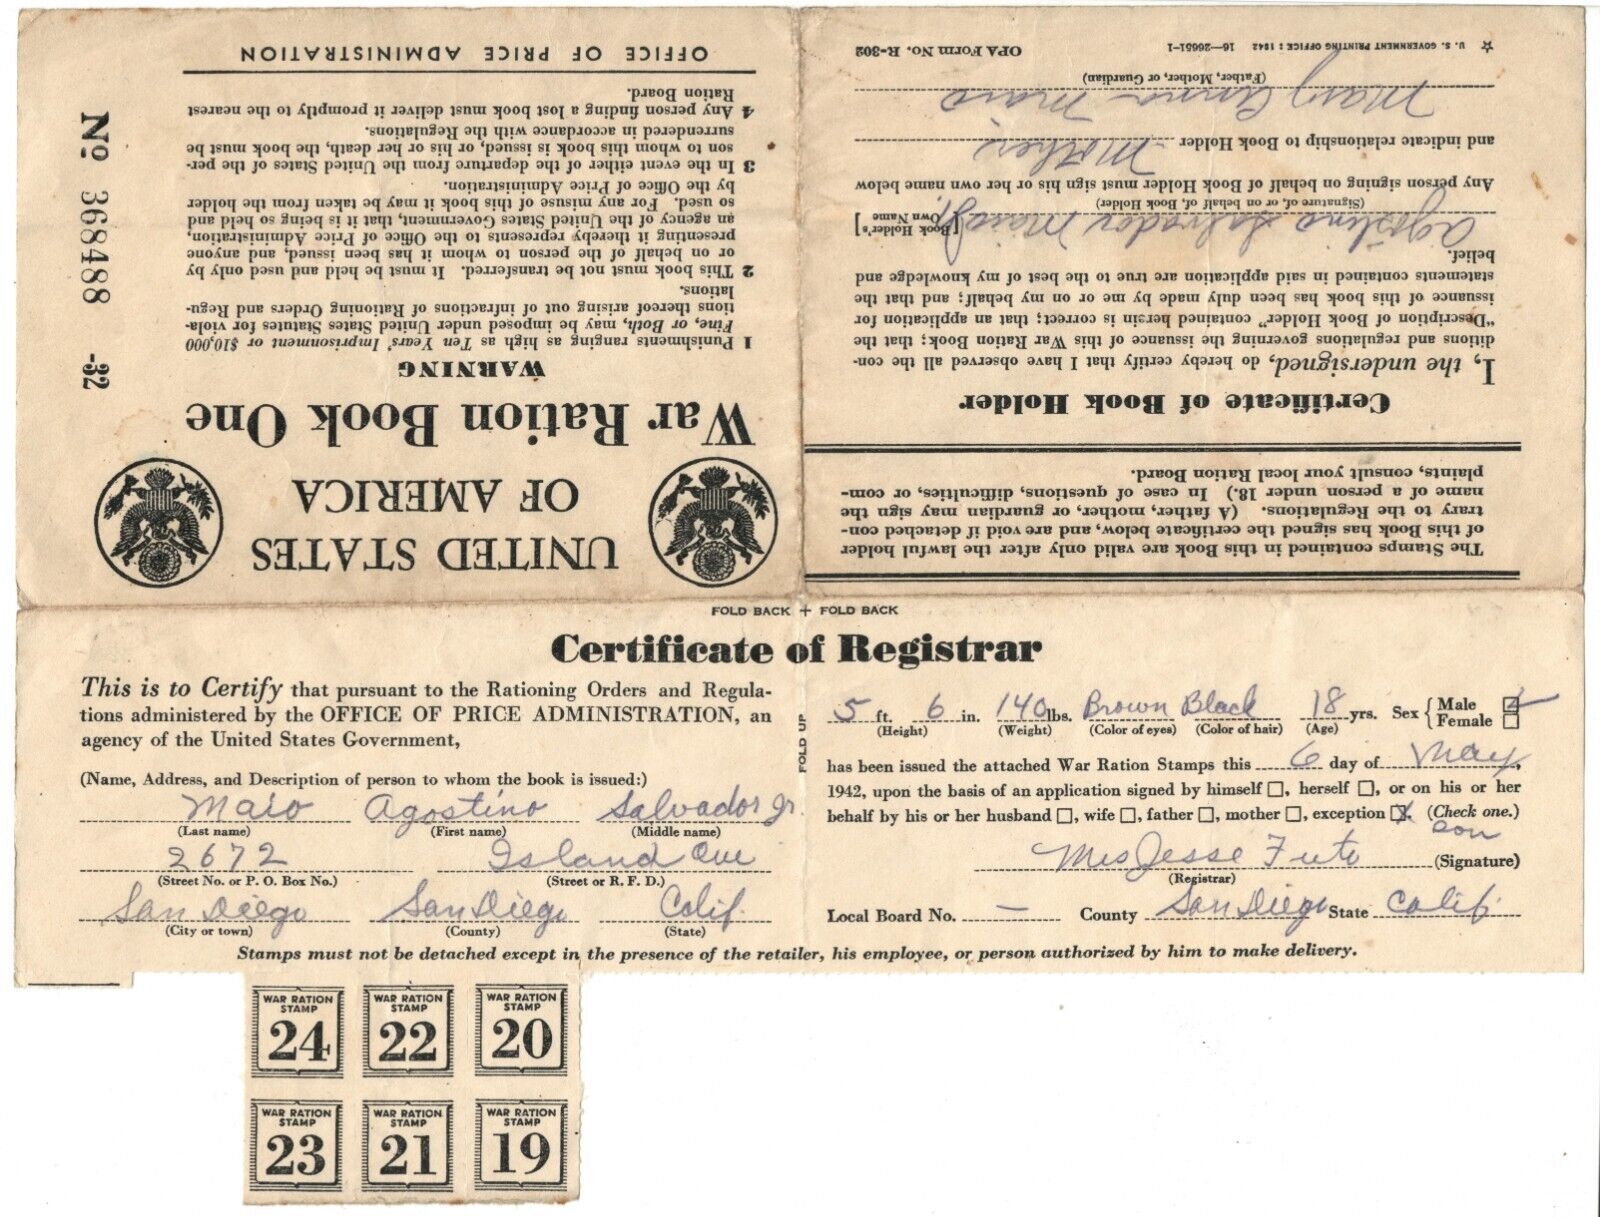 UNITED STATES
OF AMERICA
War Ration Book One
WARNING
1 Punishments ranging as high as Ten Years' Imprisonment or $10,000
Fine, or Both, may be imposed under United States Statutes for viola-
tions thereof arising out of infractions of Rationing Orders and Regu-
lations.
2 This book must not be transferred. It must be held and used only by
or on behalf of the person to whom it has been issued, and anyone
presenting it thereby represents to the Office of Price Administration,
an agency of the United States Government, that it is being so held and
so used. For any misuse of this book it may be taken from the holder
by the Office of Price Administration.
3 In the event either of the departure from the United States of the per-
son to whom this book is issued, or his or her death, the book must be
surrendered in accordance with the Regulations.
4 Any person finding a lost book must deliver it promptly to the nearest
Ration Board.
OFFICE OF PRICE ADMINISTRATION
No. 368488 -32
The Stamps contained in this Book are valid only after the lawful holder
of this Book has signed the certificate below, and are void if detached con-
trary to the Regulations. (A father, mother, or guardian may sign the
name of a person under 18.) In case of questions, difficulties, or com-
plaints, consult your local Ration Board.
Certificate of Book Holder
I, the undersigned, do hereby certify that I have observed all the con-
ditions and regulations governing the issuance of this War Ration Book; that the
"Description of Book Holder" contained herein is correct; that an application for
issuance of this book has been duly made by me or on my behalf; and that the
statements contained in said application are true to the best of my knowledge and
belief.
Agostino Salvador Maio Jr. [Book Holder's Own Name]
(Signature of, or on behalf of, Book Holder)
Any person signing on behalf of Book Holder must sign his or her own name below
and indicate relationship to Book Holder Mother
Mary Anna Maio
(Father, Mother, or Guardian)
U. S. GOVERNMENT PRINTING OFFICE : 1942 16—26651-1 OPA Form No. R-302
FOLD BACK + FOLD BACK
Certificate of Registrar
This is to Certify that pursuant to the Rationing Orders and Regula-
tions administered by the OFFICE OF PRICE ADMINISTRATION, an
agency of the United States Government,
(Name, Address, and Description of person to whom the book is issued:)
Maio Agostino Salvador Jr.
(Last name) (First name) (Middle name)
2672 Island Ave
(Street No. or P. O. Box No.) (Street or R. F. D.)
San Diego San Diego Calif.
(City or town) (County) (State)
FOLD UP
5 ft. 6 in. 140 lbs. Brown Black 18 yrs. Sex { Male
Female
(Height) (Weight) (Color of eyes) (Color of hair) (Age)
has been issued the attached War Ration Stamps this 6 day of May,
1942, upon the basis of an application signed by himself □, herself □, or on his or her
behalf by his or her husband □, wife □, father □, mother □, exception X. (Check one.)
son
Mrs Jesse Futo (Signature)
(Registrar)
Local Board No. — County San Diego State Calif.
Stamps must not be detached except in the presence of the retailer, his employee, or person authorized by him to make delivery.
WAR RATION STAMP 24
WAR RATION STAMP 22
WAR RATION STAMP 20
WAR RATION STAMP 23
WAR RATION STAMP 21
WAR RATION STAMP 19